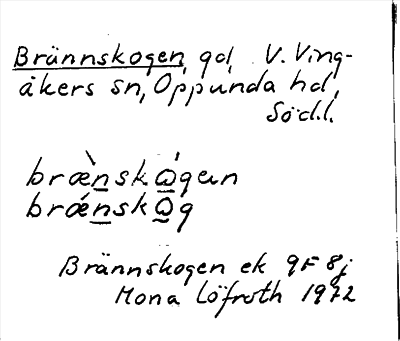 Brännskogen, gd, V. Ving-
åkers sn, Oppunda hd,
Södl.
bræ̀nskώgen
brǽnskωg
Brännskogen ek 9F 8j
Mona Löfroth 1972